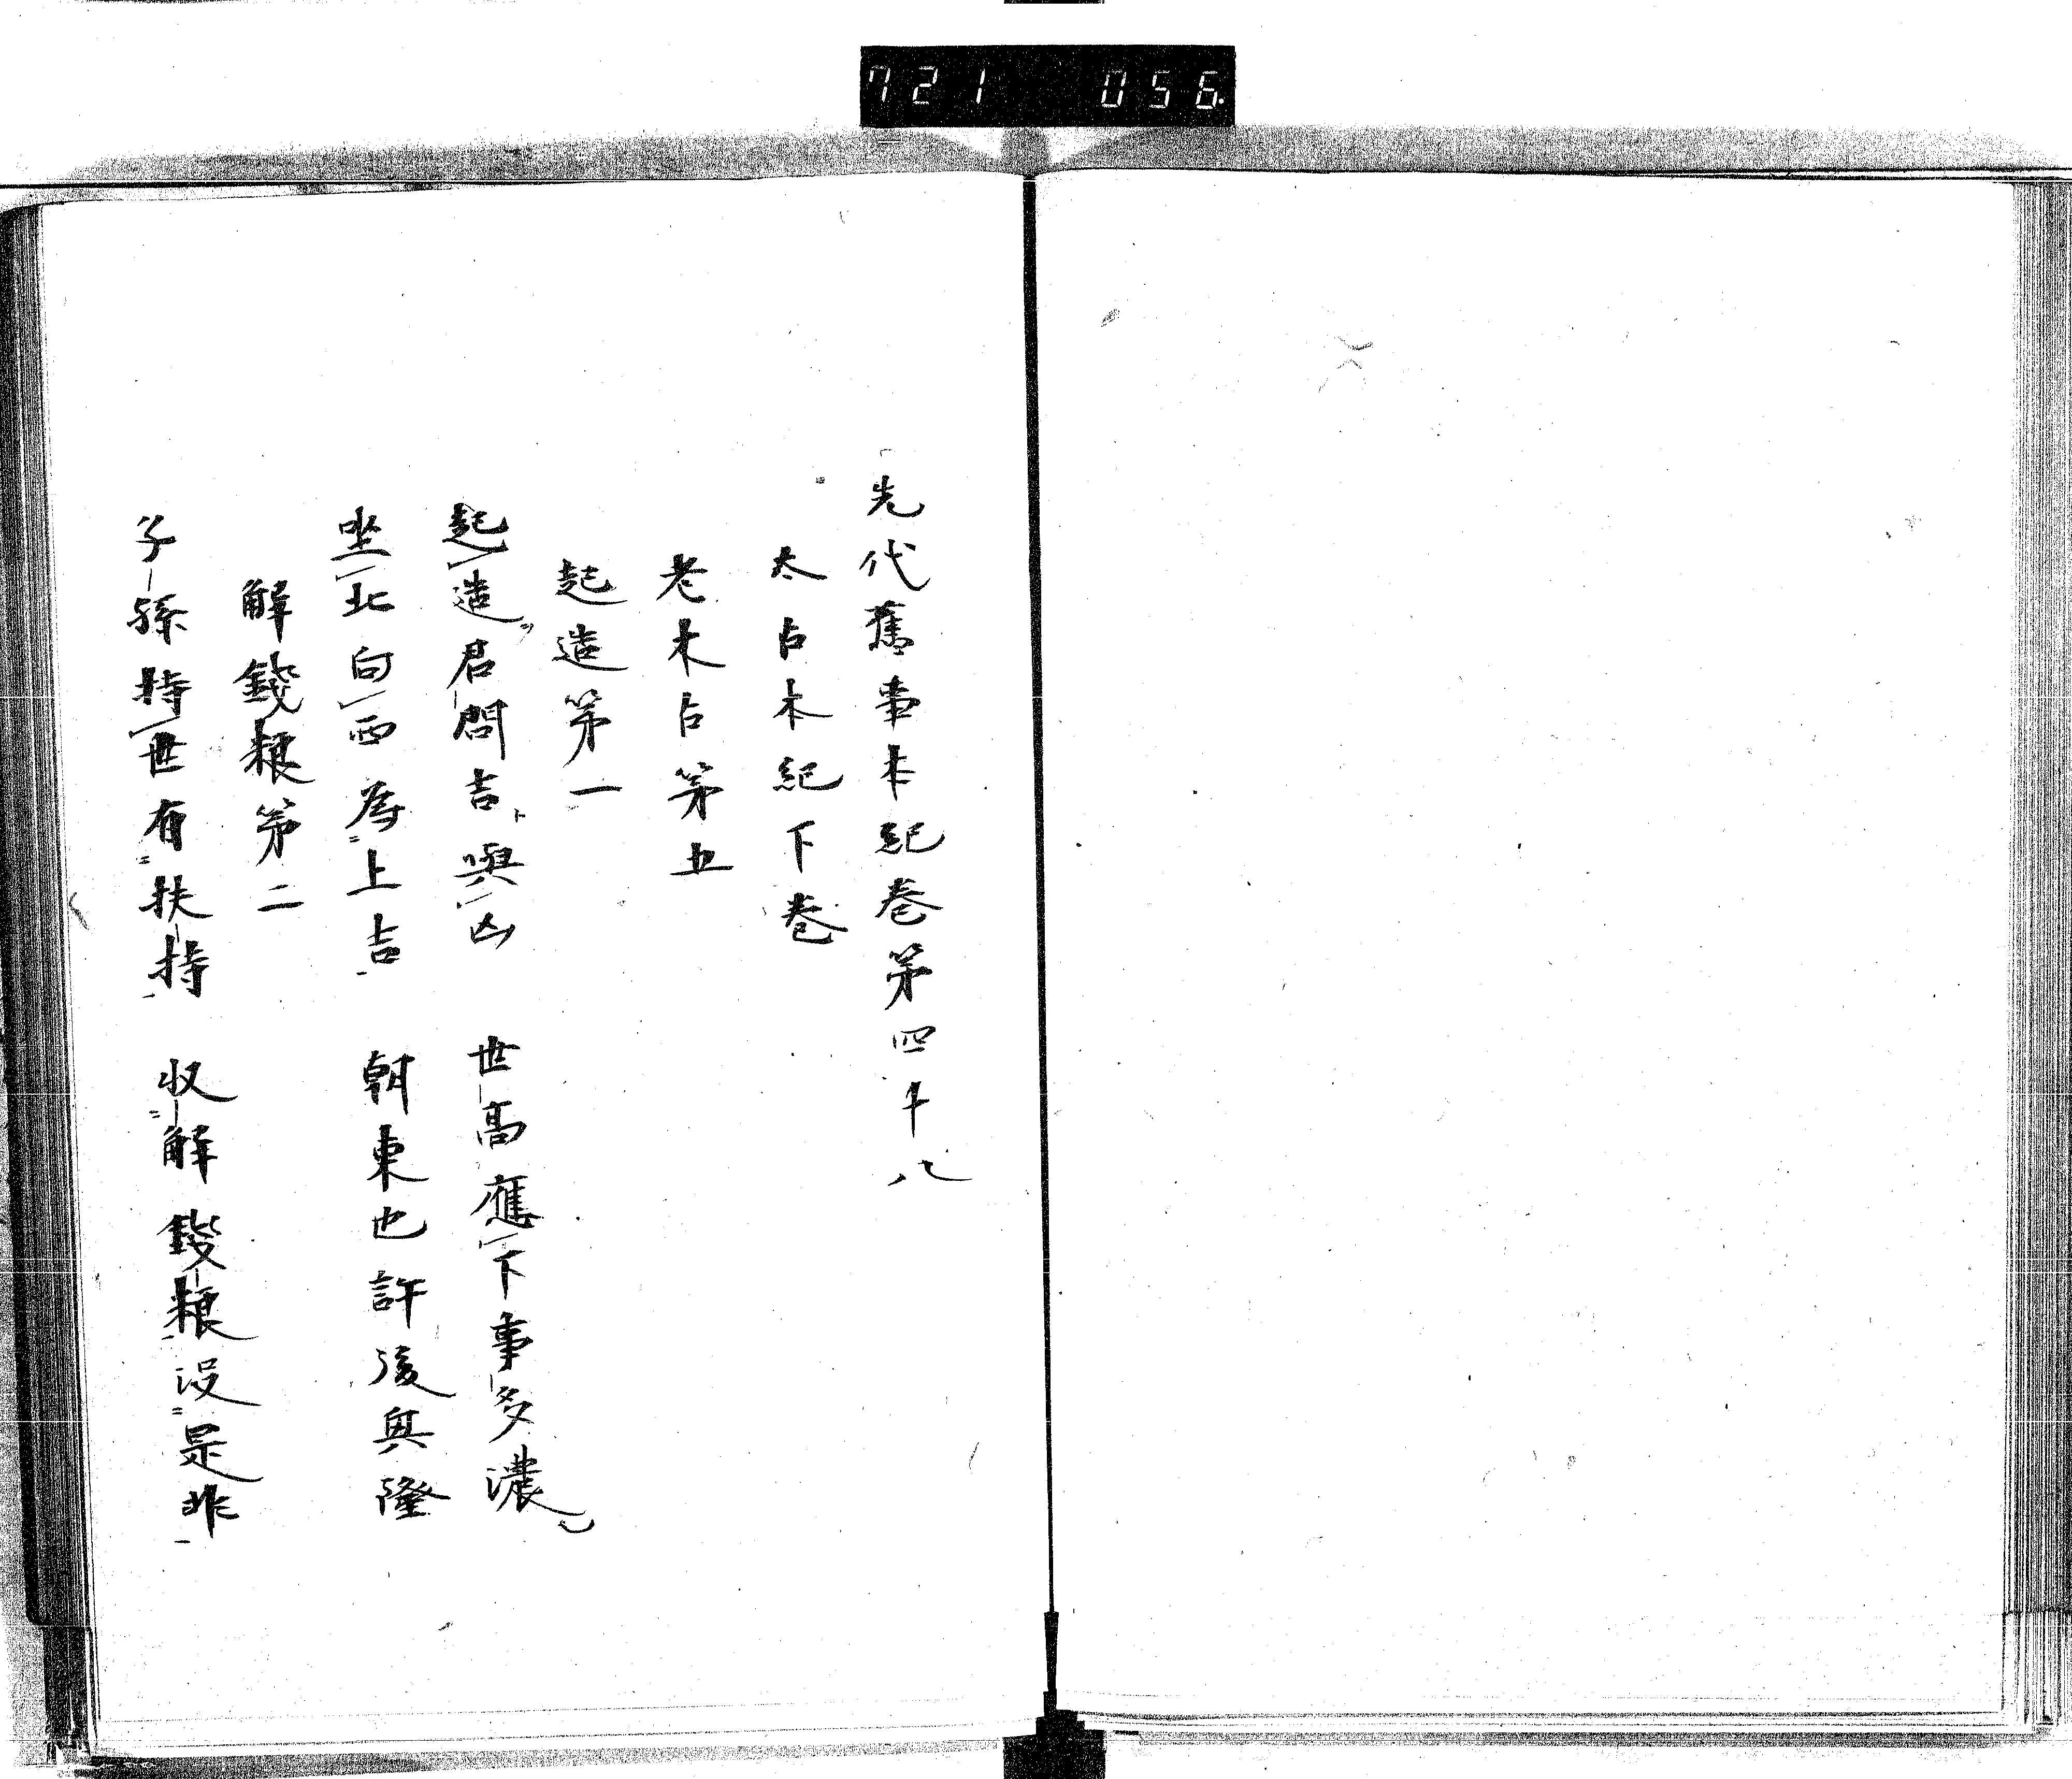 721 056
先代舊事本紀卷第四十八
太占本紀下卷
老木占第五
起造第一
起造君問吉與凶 世高應下事多濃
坐北向西為上吉 朝東也許後興隆
解錢粮第二
子孫持世有扶持 収解錢粮没是非